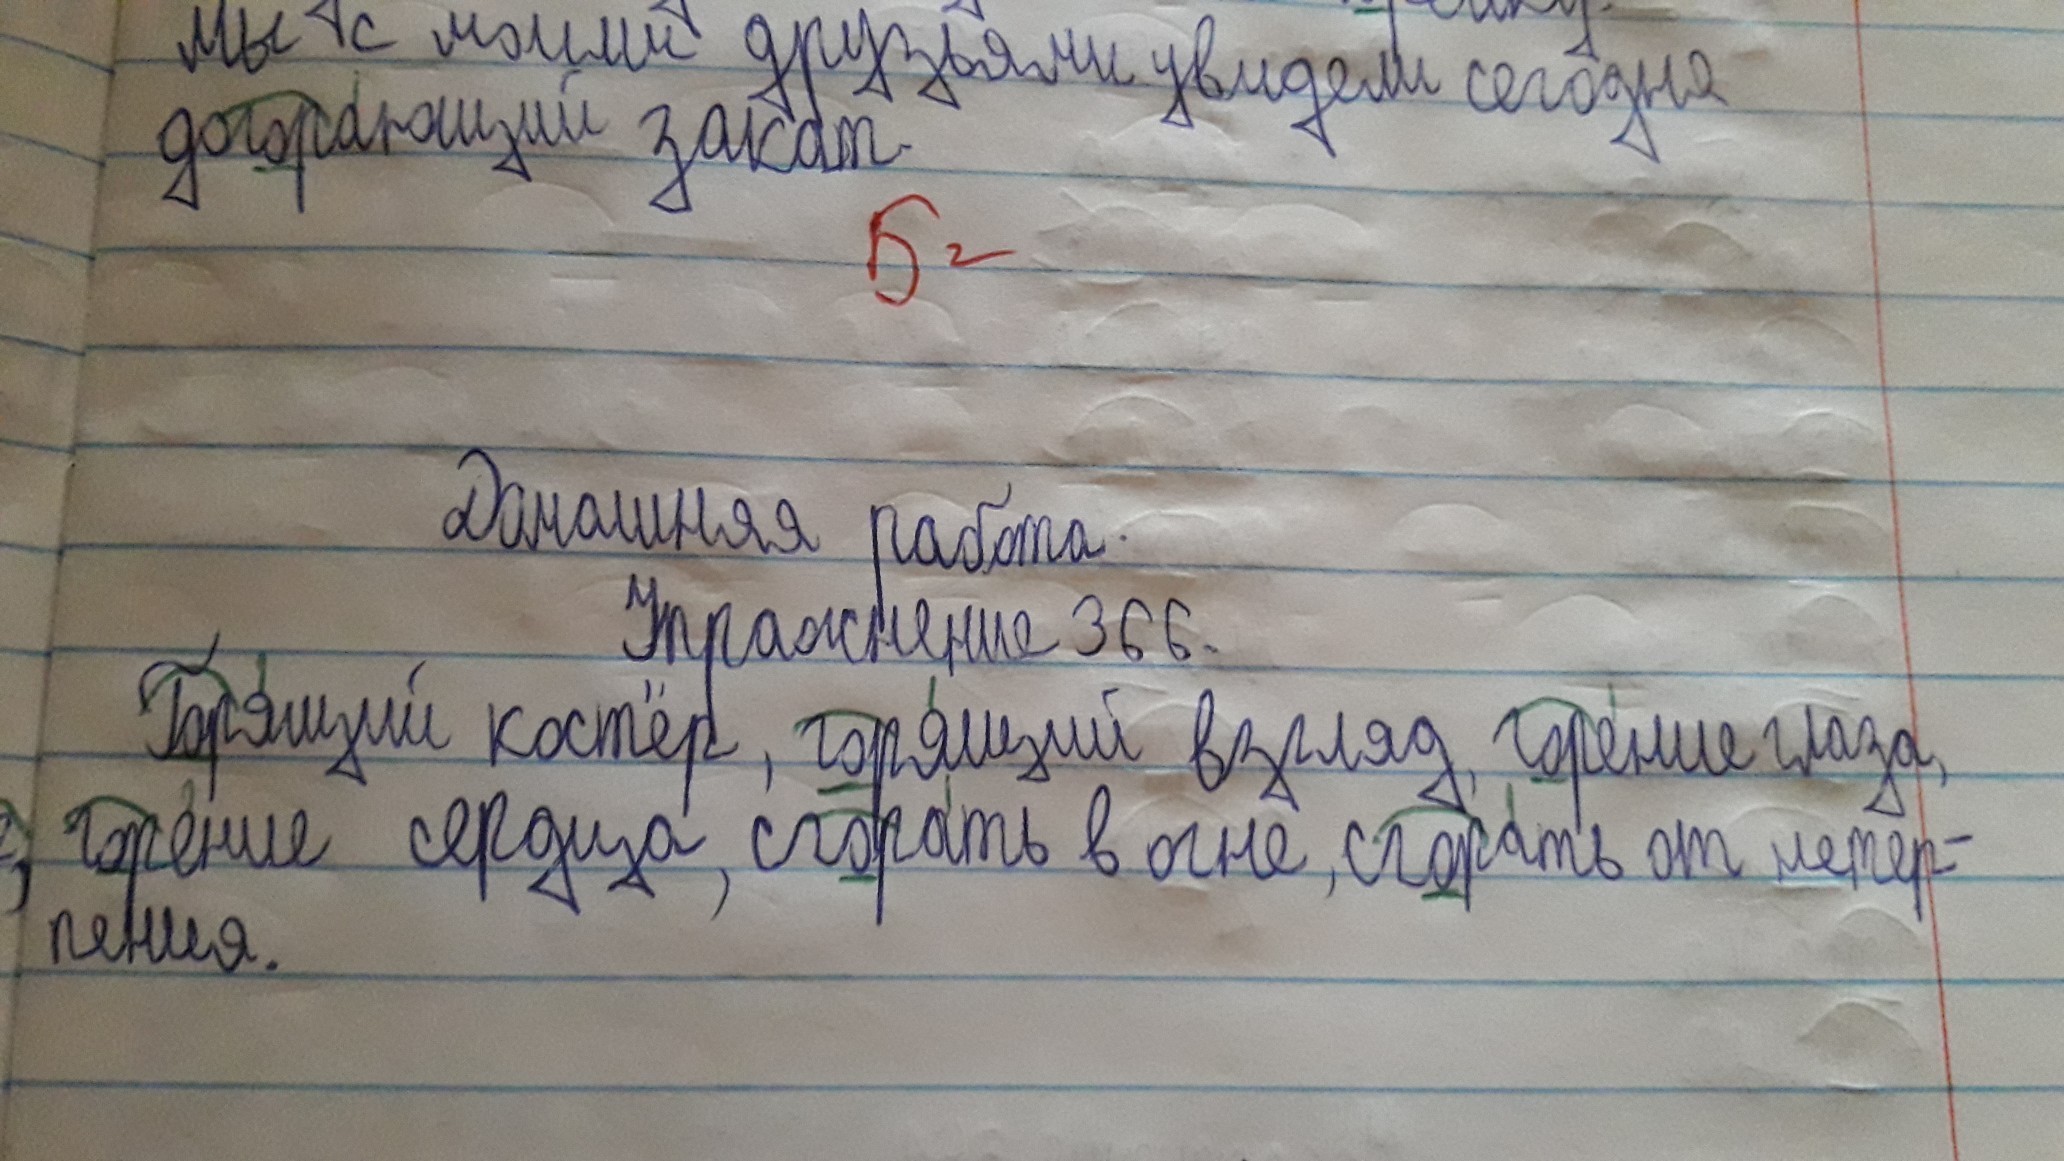 Мы с моими друзьями увидем сегодня
догорающий закат.
Домашняя работа.
Упражнение 366.
Горящий костёр, горящий взгляд, горение глаза,
горение сердца, сгорать в огне, сгорать от нетер-
пения.